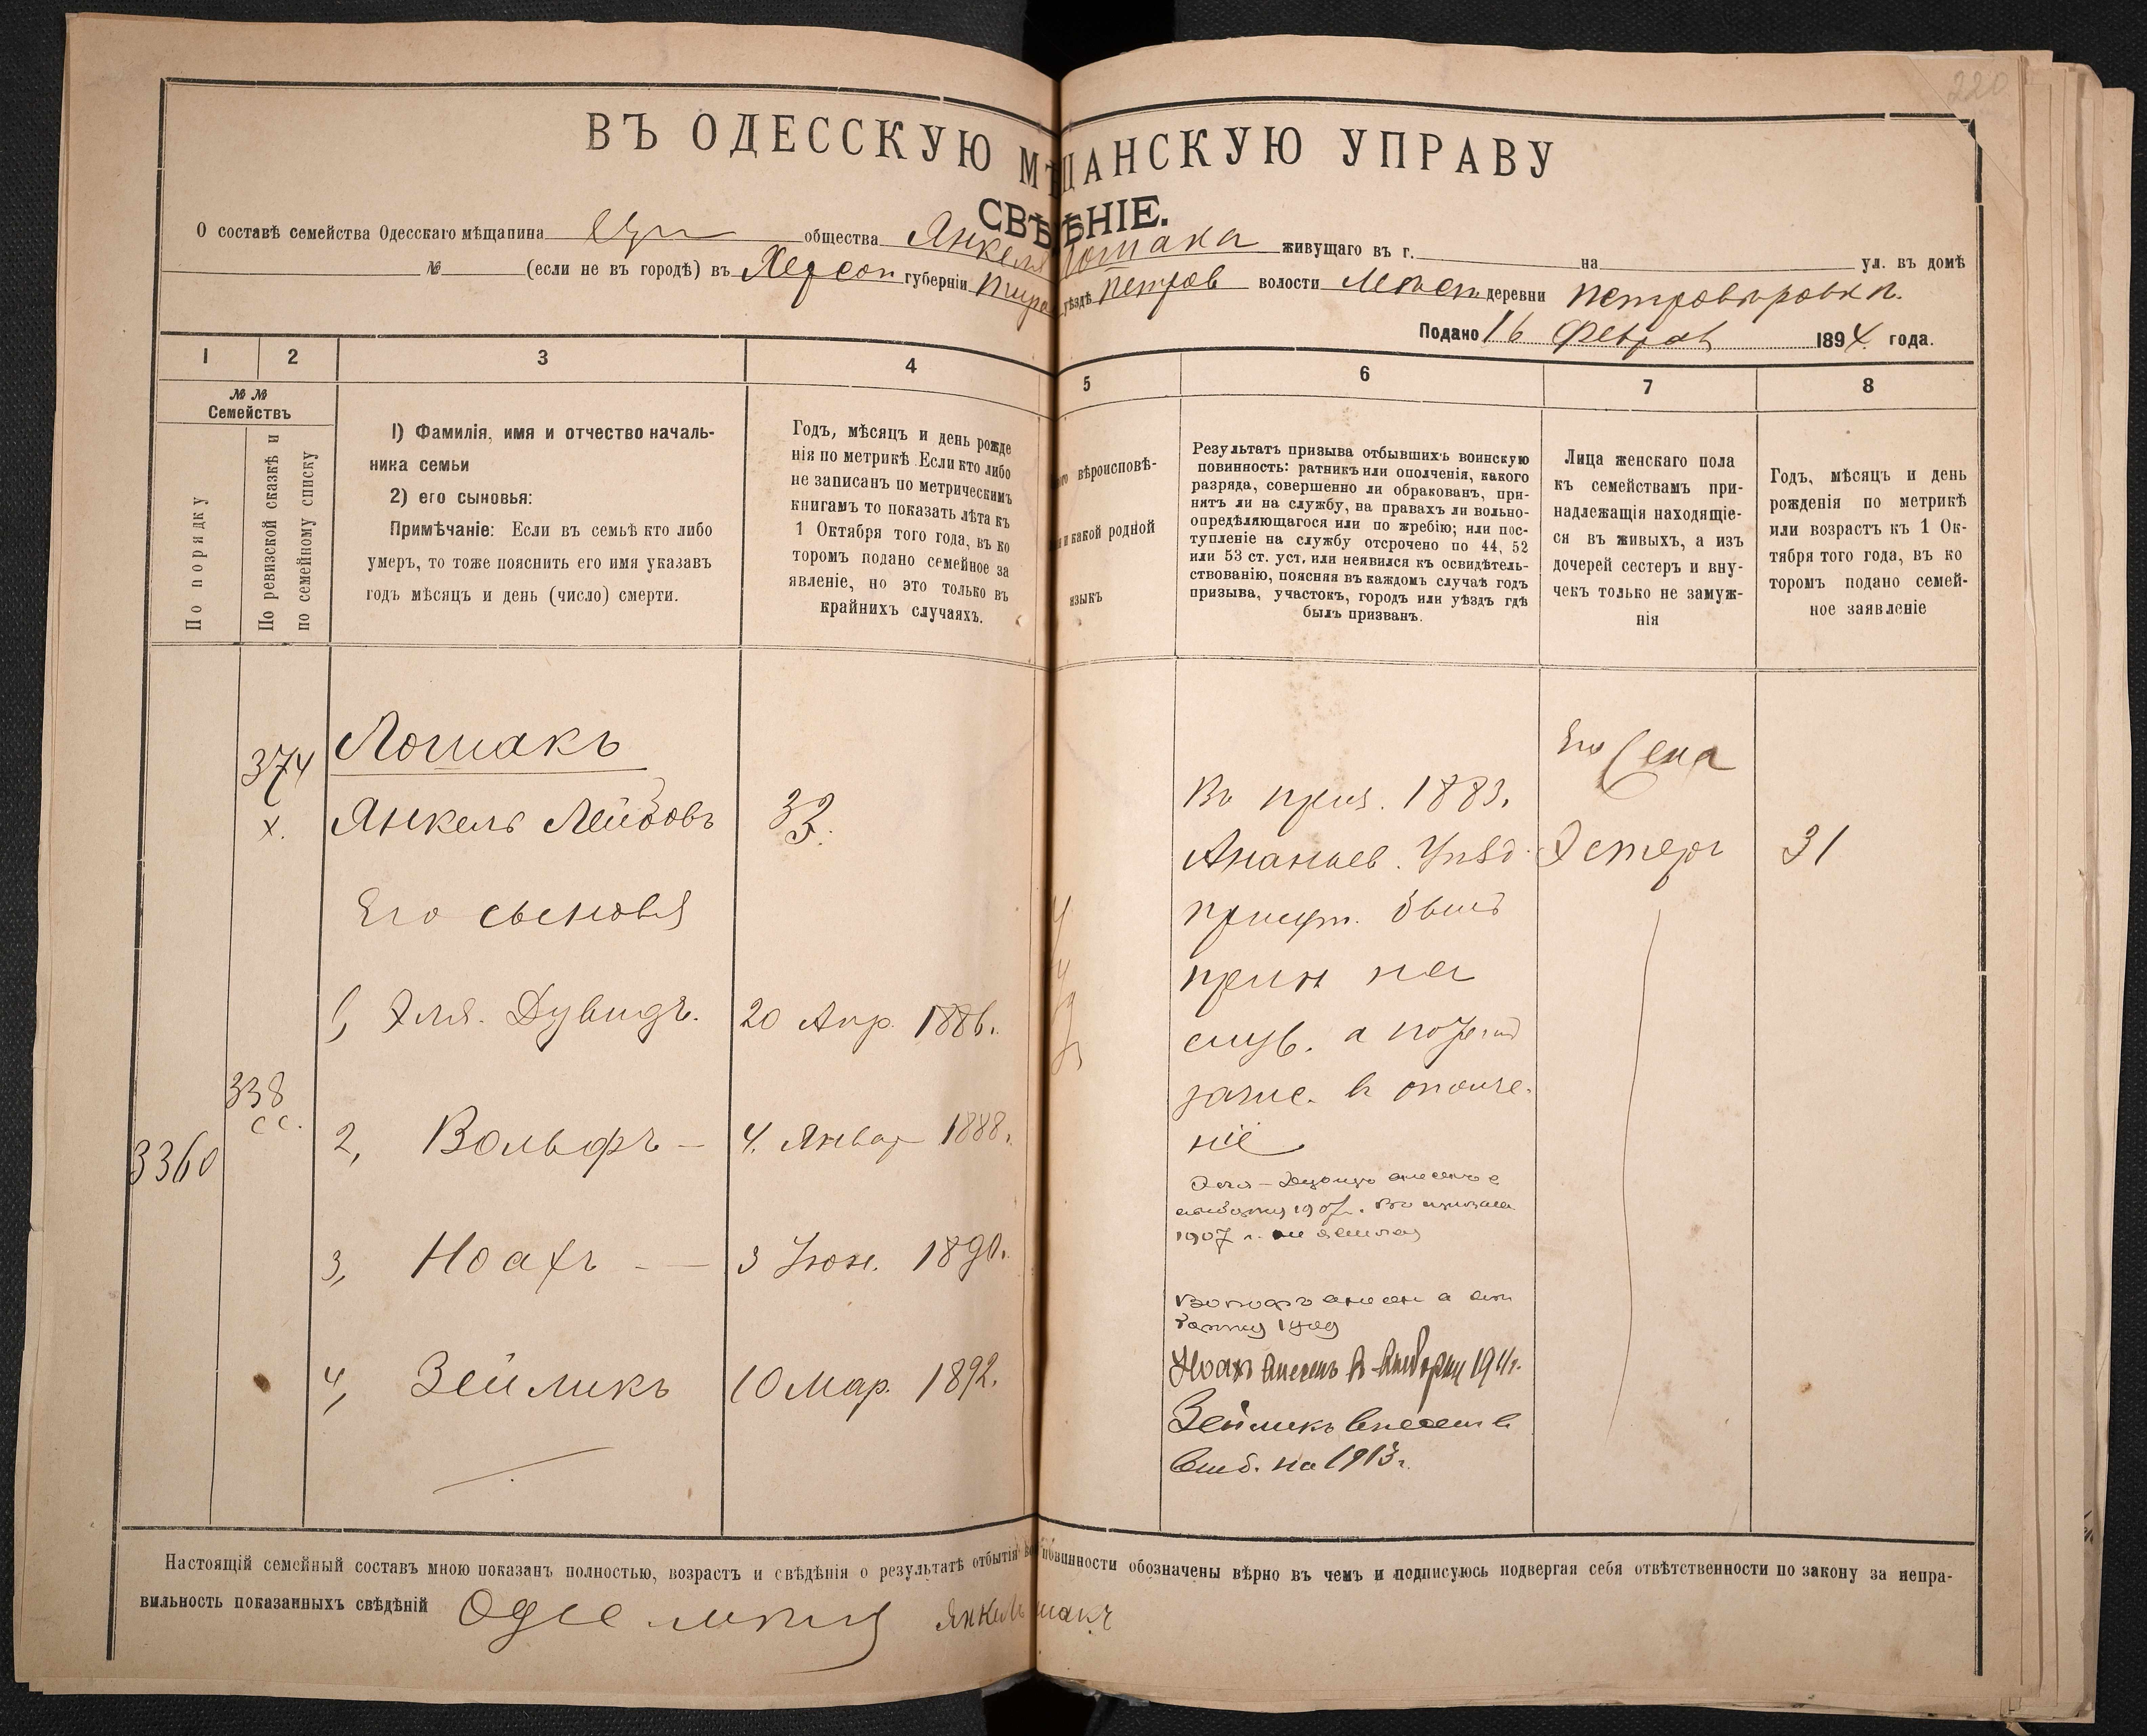 220
ВЪ ОДЕССКУЮ МѢЩАНСКУЮ УПРАВУ
СВѢДѢНІЕ.
О составѣ семейства Одесскаго мѣщанина общества Янкеля Лошака живущаго въ г. на ул. въ домѣ
№ (если не въ городѣ) въ Херсон губерніи Тирас уѣздѣ петров волости деревни
Подано 16 Феврал 1894 года.
1 2 3 4 5 6 7 8
№ №
Семействъ
По порядку
По ревизской сказкѣ и
по семейному списку
1) Фамилія, имя и отчество началь-
ника семьи
2) его сыновья:
Примѣчаніе: Если въ семьѣ кто либо
умеръ, то тоже пояснить его имя указавъ
годъ мѣсяцъ и день (число) смерти.
Годъ, мѣсяцъ и день рожде
нія по метрикѣ. Если кто либо
не записанъ по метрическимъ
книгамъ то показать лѣта къ
1 Октября того года, въ ко
торомъ подано семейное за
явленіе, но это только въ
крайнихъ случаяхъ.
вѣроисповѣ-
и какой родной
языкъ
Результатъ призыва отбывшихъ воинскую
повинность: ратникъ или ополченія, какого
разряда, совершенно ли обракованъ, при-
нятъ ли на службу, на правахъ ли вольно-
опредѣляющагося или по жребію; или пос-
тупленіе на службу отсрочено по 44, 52
или 53 ст. уст. или неявился къ освидѣтель-
ствованію, поясняя въ каждомъ случаѣ годъ
призыва, участокъ, городъ или уѣздъ гдѣ
былъ призванъ.
Лица женскаго пола
къ семействамъ при-
надлежащія находящіе-
ся въ живыхъ, а изъ
дочерей сестеръ и вну-
чекъ только не замуж-
нія
Годъ, мѣсяцъ и день
рожденія по метрикѣ
или возрастъ къ 1 Ок-
тября того года, въ ко
торомъ подано семей-
ное заявленіе
374
х.
Лошакъ
Янкель Лейбовъ 33.
Его сыновья
1, Эля. Дувидъ. 20 Апр. 1886.
338
сс.
3360
2, Вольфъ — 4. Январ 1888.
3, Ноахъ — 3 Іюн. 1890.
4, Зейликъ 10 Мар. 1892.
Во приз. 1883.
Ананьев. Уѣзд.
присут. бывъ
прин на
служ. а
зачис. в ополче-
ніе
Эля-Дувидъ внесенъ в
1907 г. Во призыва
1907 г. не явился
Вольфъ внесен в
1909
Ноахъ внесенъ в выборку 1911 г.
Зейликъ внесен в
выб. на 1913 г.
Его Жена
Эстеръ 31
Настоящій семейный составъ мною показанъ полностью, возрастъ и свѣдѣнія о результатѣ отбытія повинности обозначены вѣрно въ чемъ и подписуюсь подвергая себя отвѣтственности по закону за непра-
вильность показанныхъ свѣдѣній Янкель